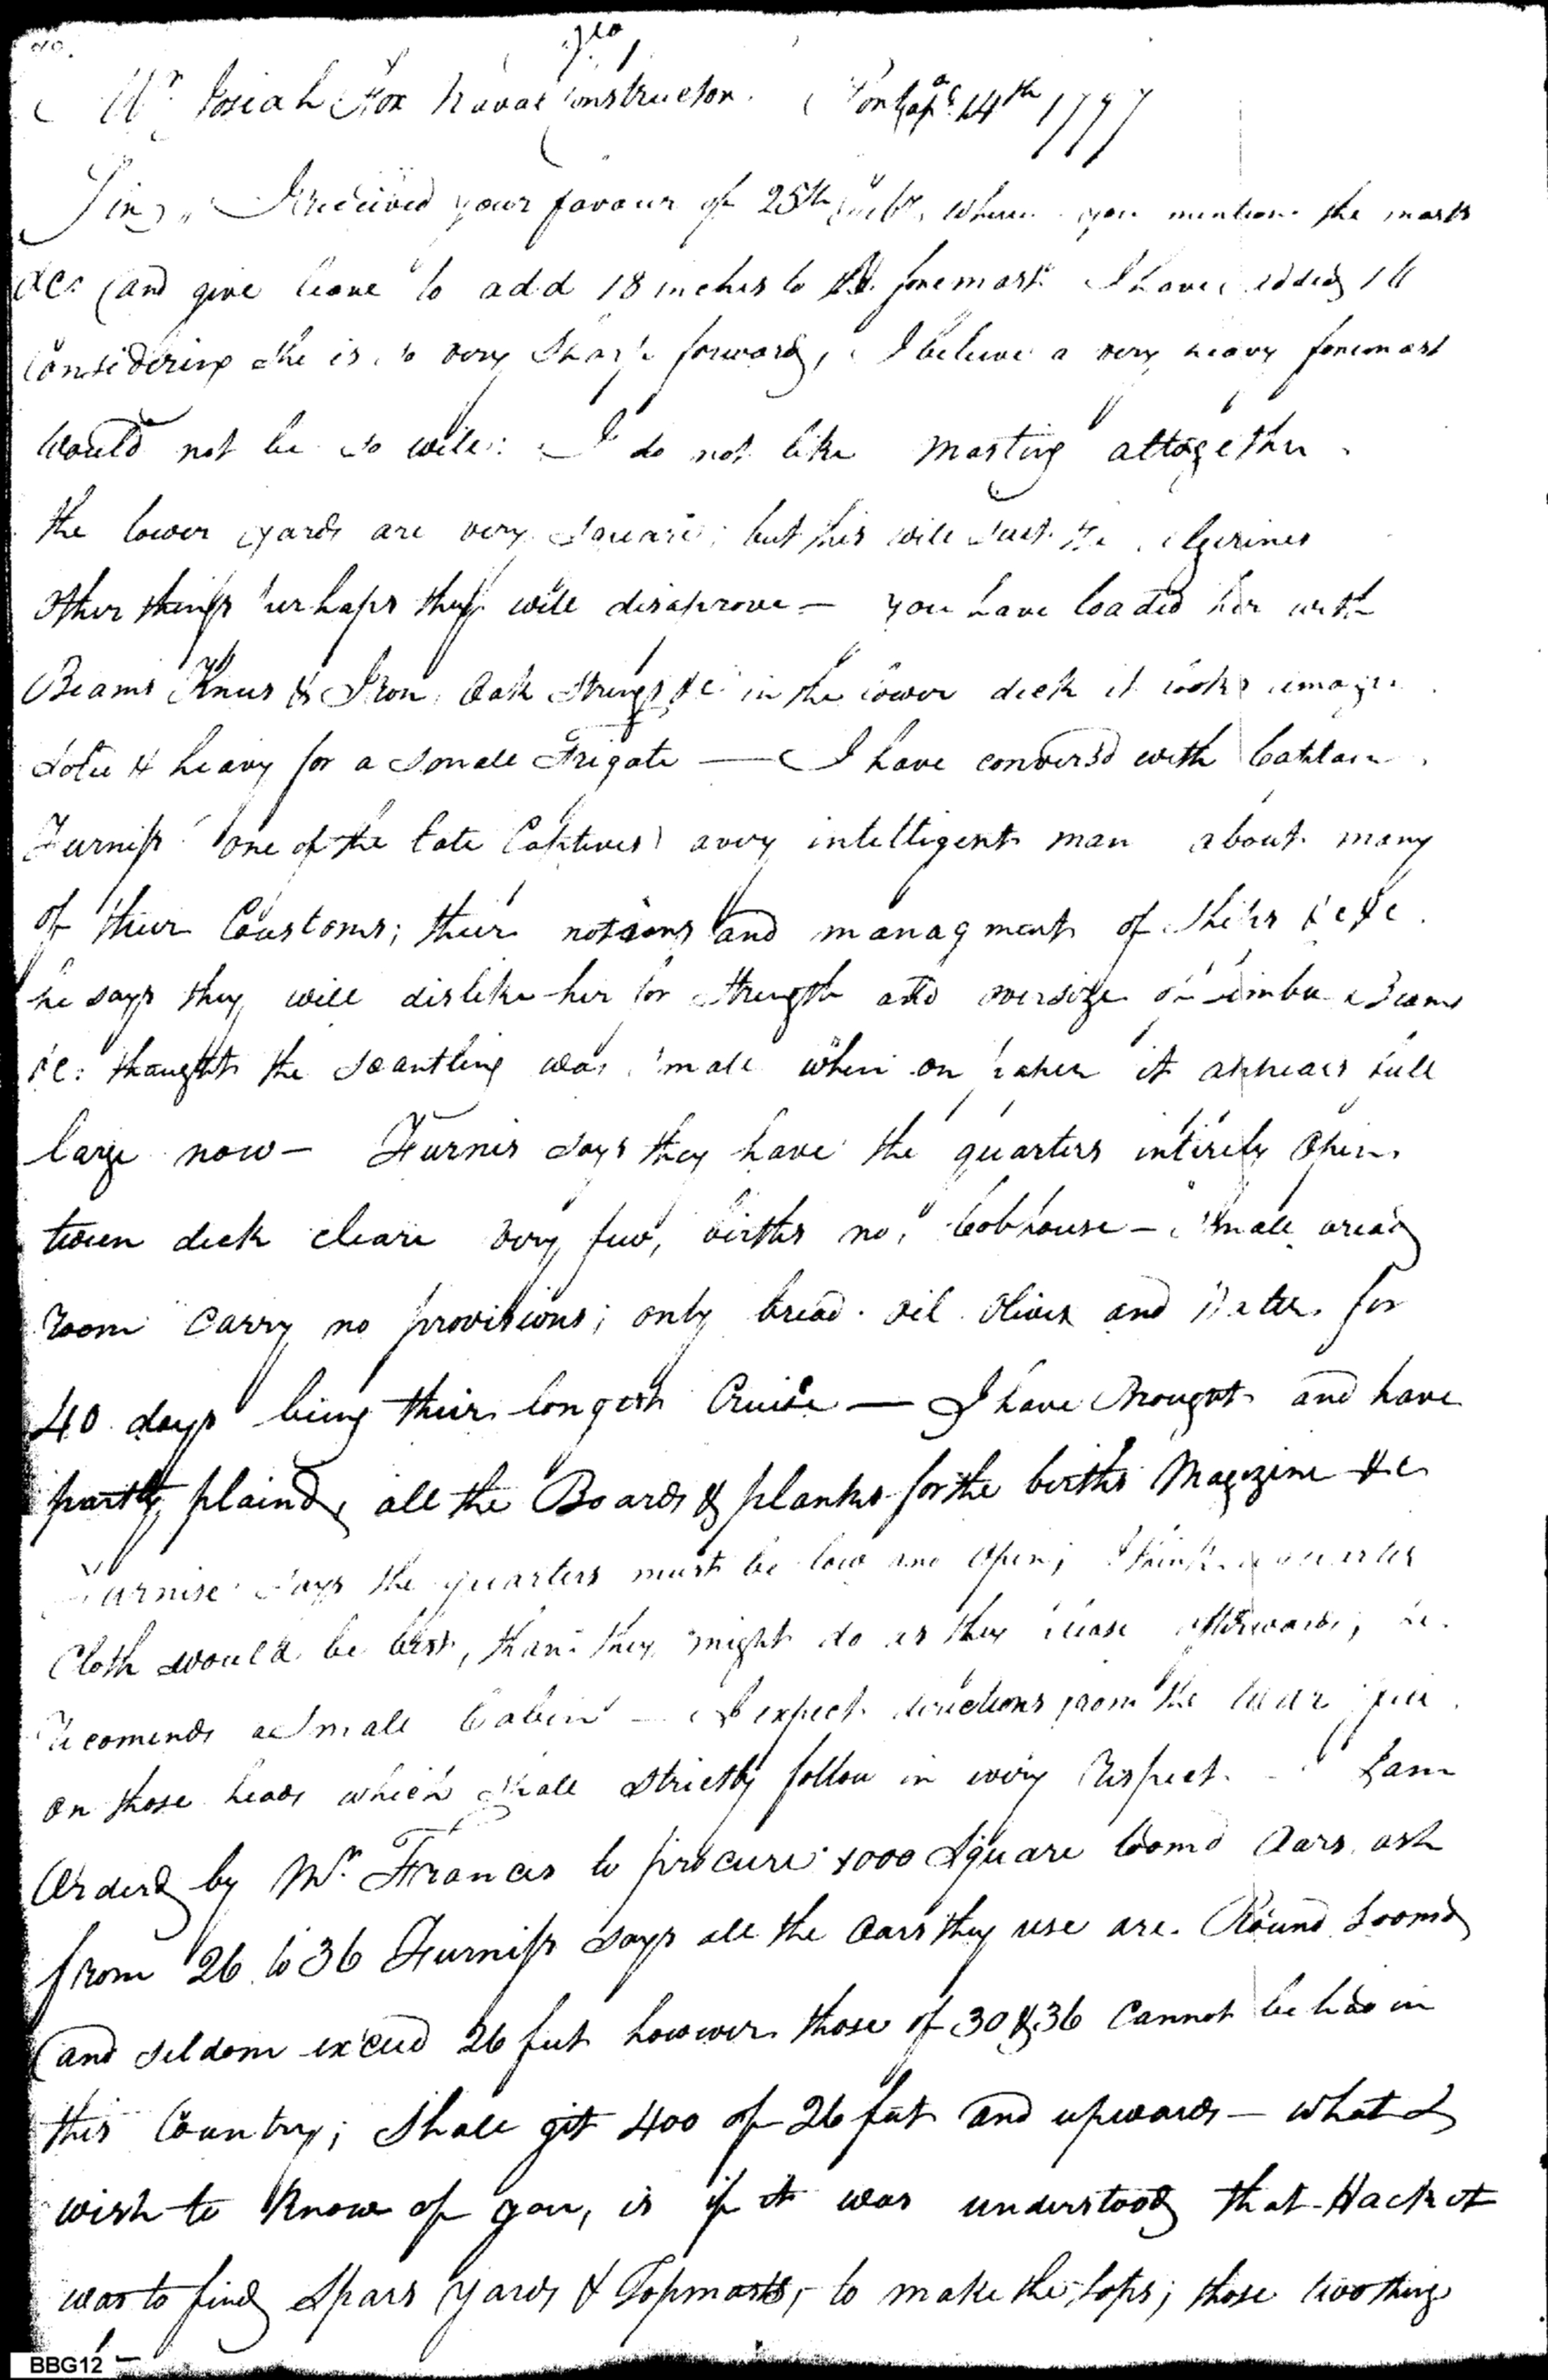 Mr. Josiah Fox Naval Constructor. Portsmo. 14th 1797
Sir, I received your favour of 25th wherein you mention the masts
&c: and give leave to add 18 inches to the foremast I have added 1
Considering she is so very Sharp forward, I believe a very heavy foremast
would not be so well: I do not like masting altogether.
the lower yards are very Square; but this will Suit the Algerines
Other things perhaps they will disaprove — you have loaded her with
Beams Knees & Iron, Oak Strings &c in the lower deck it looks
Solid & heavy for a Small Frigate — I have convers'd with Captain
Furniss (one of the late Captives) a very intelligent man about many
of their Coustoms; their notions and managment of Ships &c &c.
he says they will dislike her for Strength and oversize of timber Beams
&c: thought the Scantling was Small when on paper it appears full
large now — Furnis says they have the quarters intirely Open
tween deck cleare very few, births no, Cobhouse — Small bread
room carry no provisions; only bread. oil. Olives and Water for
40 days being their longest Cruise — I have Brought and have
partly plaind, all the Boards & planks for the births Magazine &c
Furnise Says the quarters must be low and Open; I think a quarter
Cloth would be best, than they might do as they please afterwards; he
recomends a Small Cabin — I expect directions from the
on those heads which Shall Strictly follow in every Respect. — I am
Orderd by Mr. Francis to procure 1000 Square loomd Oars ash
from 26 to 36 Furniss Says all the Oars they use are. Round Loomd
and seldom exceed 26 feet however those of 30 & 36 Cannot be had in
this Country; Shall git 400 of 26 feet and upwards — what I
wish to know of you, is if it was understood that Hacket
was to find Spars Yards & Topmasts, to make the tops; those two things
BBG12